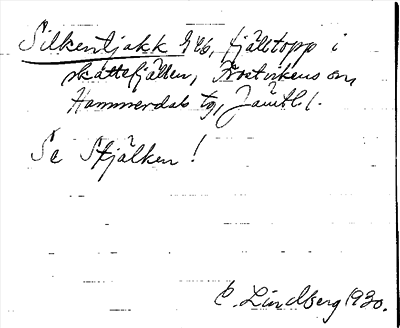 Silkentjakk 946, fjälltopp i
skattefjällen, Frostvikens sn,
Hammerdals tg, Jämtl.
Se Stjälken!
C. Lindberg 1930.